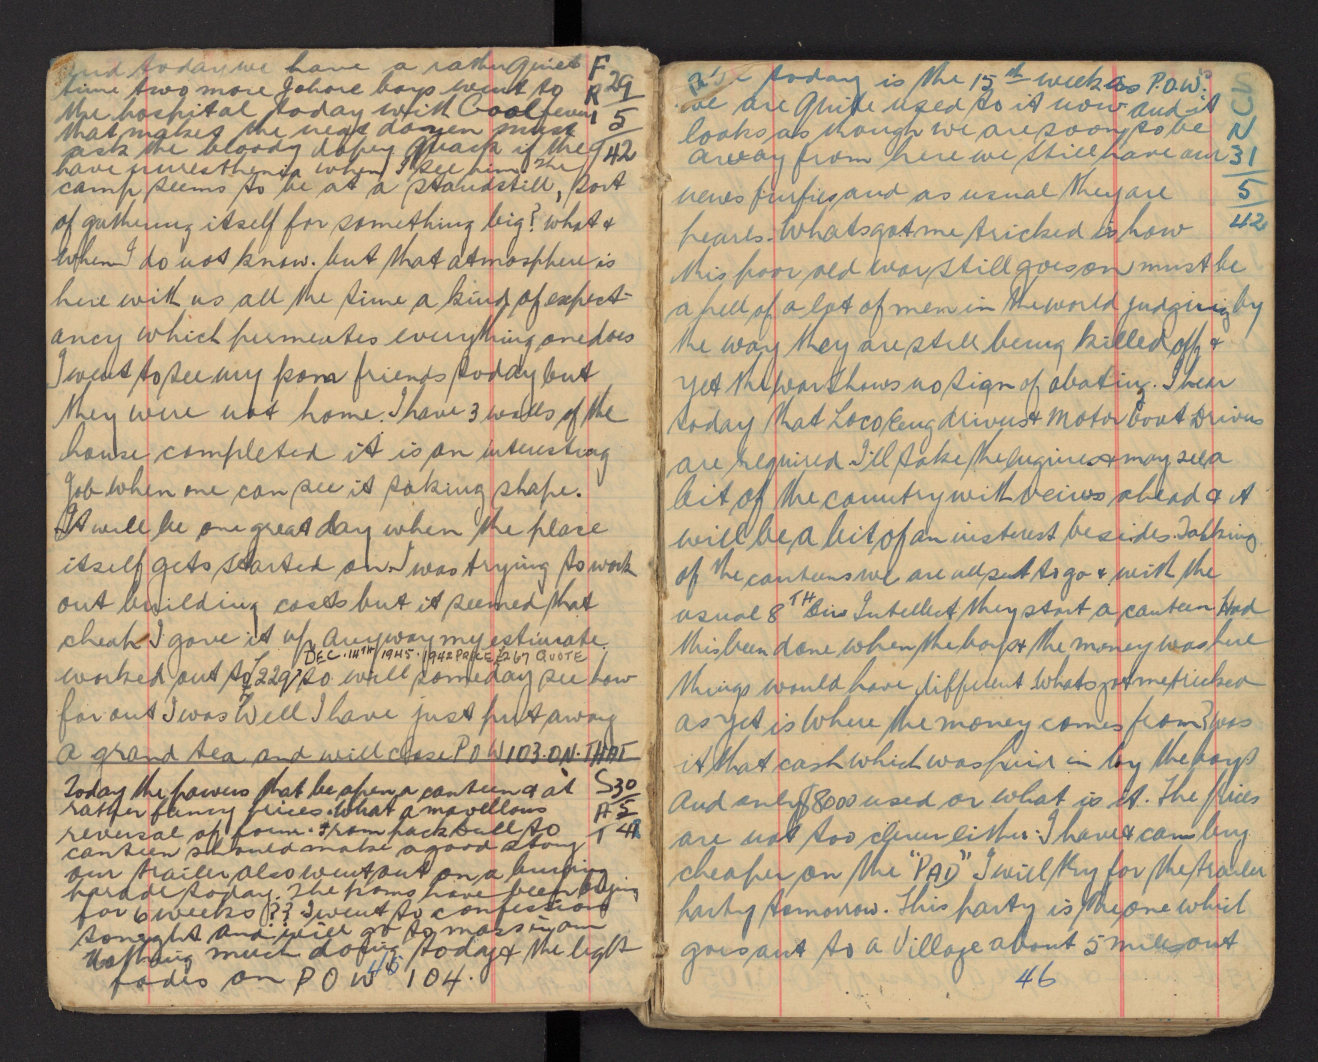 and today we have a rather quiet
time two more Johore boys went to
the hospital today with Coolfever
that makes the neat dozen must
ask the bloody dopey quack if they
have nurses there when I see him. The
camp seems to be at a standstill, sort
of gathering itself for something big? what &
when I do not know. but that atmosphere is
here with us all the time a kind of expect-
ancy which permeates everything one does
I went to see my pom friends today but
they were not home. I have 3 walls of the
house completed it is an interesting
job when one can see it taking shape.
It will be one great day when the place
itself gets started on. I was trying to work
out building costs but it seemed that
cheap I gave it up anyway my estimate
DEC. 14TH 1945. 1942 PRICE £267 QUOTE
worked out to £229 so will someday see how
far out I was Well I have just put away
a grand tea and will close POW 103. ON. THAT
FRI
29
5
42
Today the powers that be open a canteen & at
rather fancy prices. What a marvellous
reversal of form. From pack bull to
canteen should make a good story
our trailer also went out on a buying
parade today. The poms have been buying
for 6 weeks ?? I went to confession
tonight and will go to mass in am
Nothing much doing today & the light
fades on POW 104.
SAT
30
5
42
45
today is the 15th week as P.O.W.s
we are quite used to it now and it
looks as though we are soon to be
away from here we still have our
news furfies and as usual they are
pearls. Whats got me tricked is how
this poor old war still goes on must be
a hell of a lot of men in the world judging by
the way they are still being killed off &
yet the war shows no sign of abating. I hear
today that Loco Eng drivers & Motor Boat Drivers
are required I'll take the engines & may see a
bit of the country with views ahead & it
will be a bit of an interest besides. Talking
of the canteens we are all set to go & with the
usual 8TH Div Intellect they start a canteen Had
this been done when the boys & the money was here
things would have different whats got me tricked
as yet is where the money comes from? was
it that cash which was paid in by the boys
and only $8000 used or what is it. The prices
are not too clever either. I have & can buy
cheaper on the "PAD" I will try for the trailer
party tomorrow. This party is the one which
goes out to a Village about 5 miles out
SUN
31
5
42
46